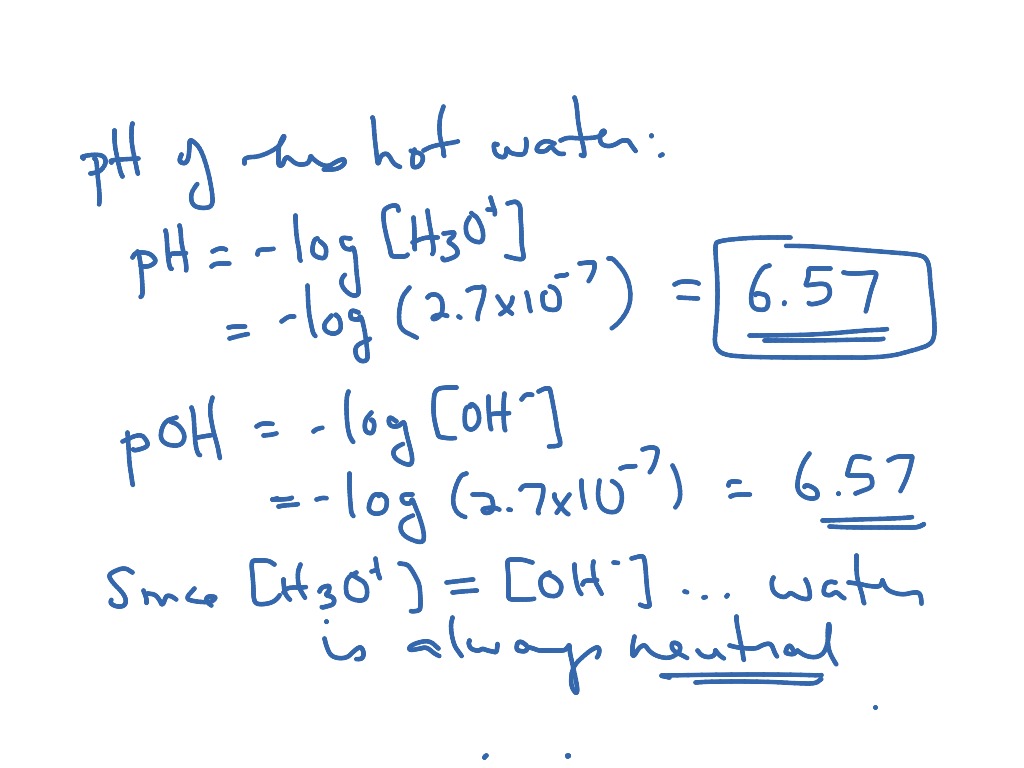 pH of this hot water:
pH = -log [H₃O⁺]
= -log (2.7x10⁻⁷) = 6.57
pOH = -log [OH⁻]
= -log (2.7x10⁻⁷) = 6.57
Since [H₃O⁺) = [OH⁻] ... water
is always neutral